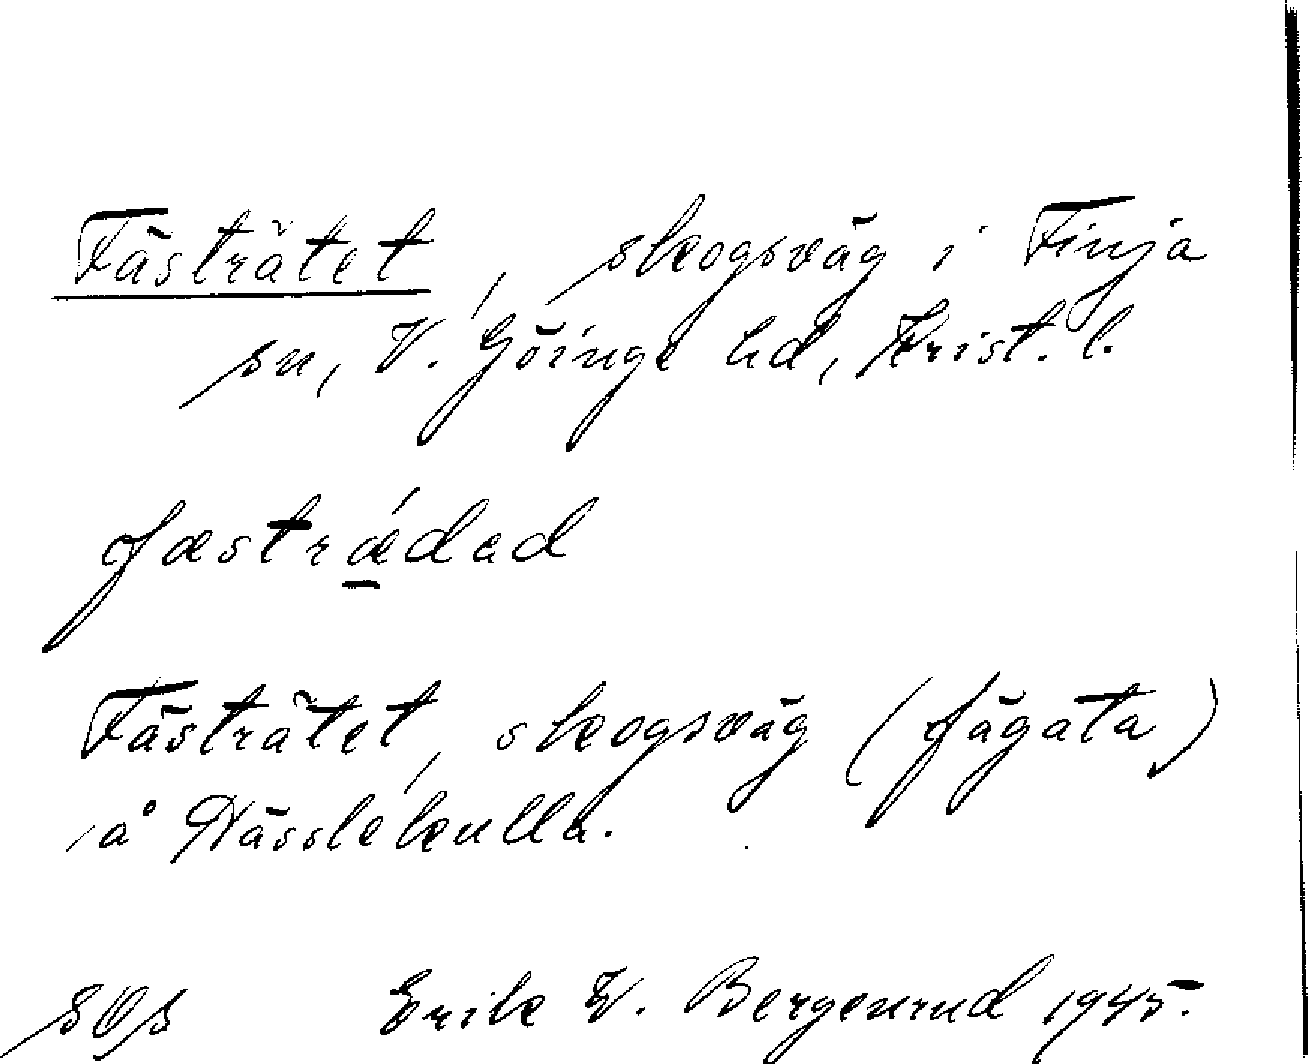 Fästrätet, skogsväg i Finja
sn, V. Göinge hd, Krist. l.
fæstrǽ̱ded
Fästrätet, skogsväg (fägata)
å Hässlekulla.
SOS Erik W. Bergenrud 1945.